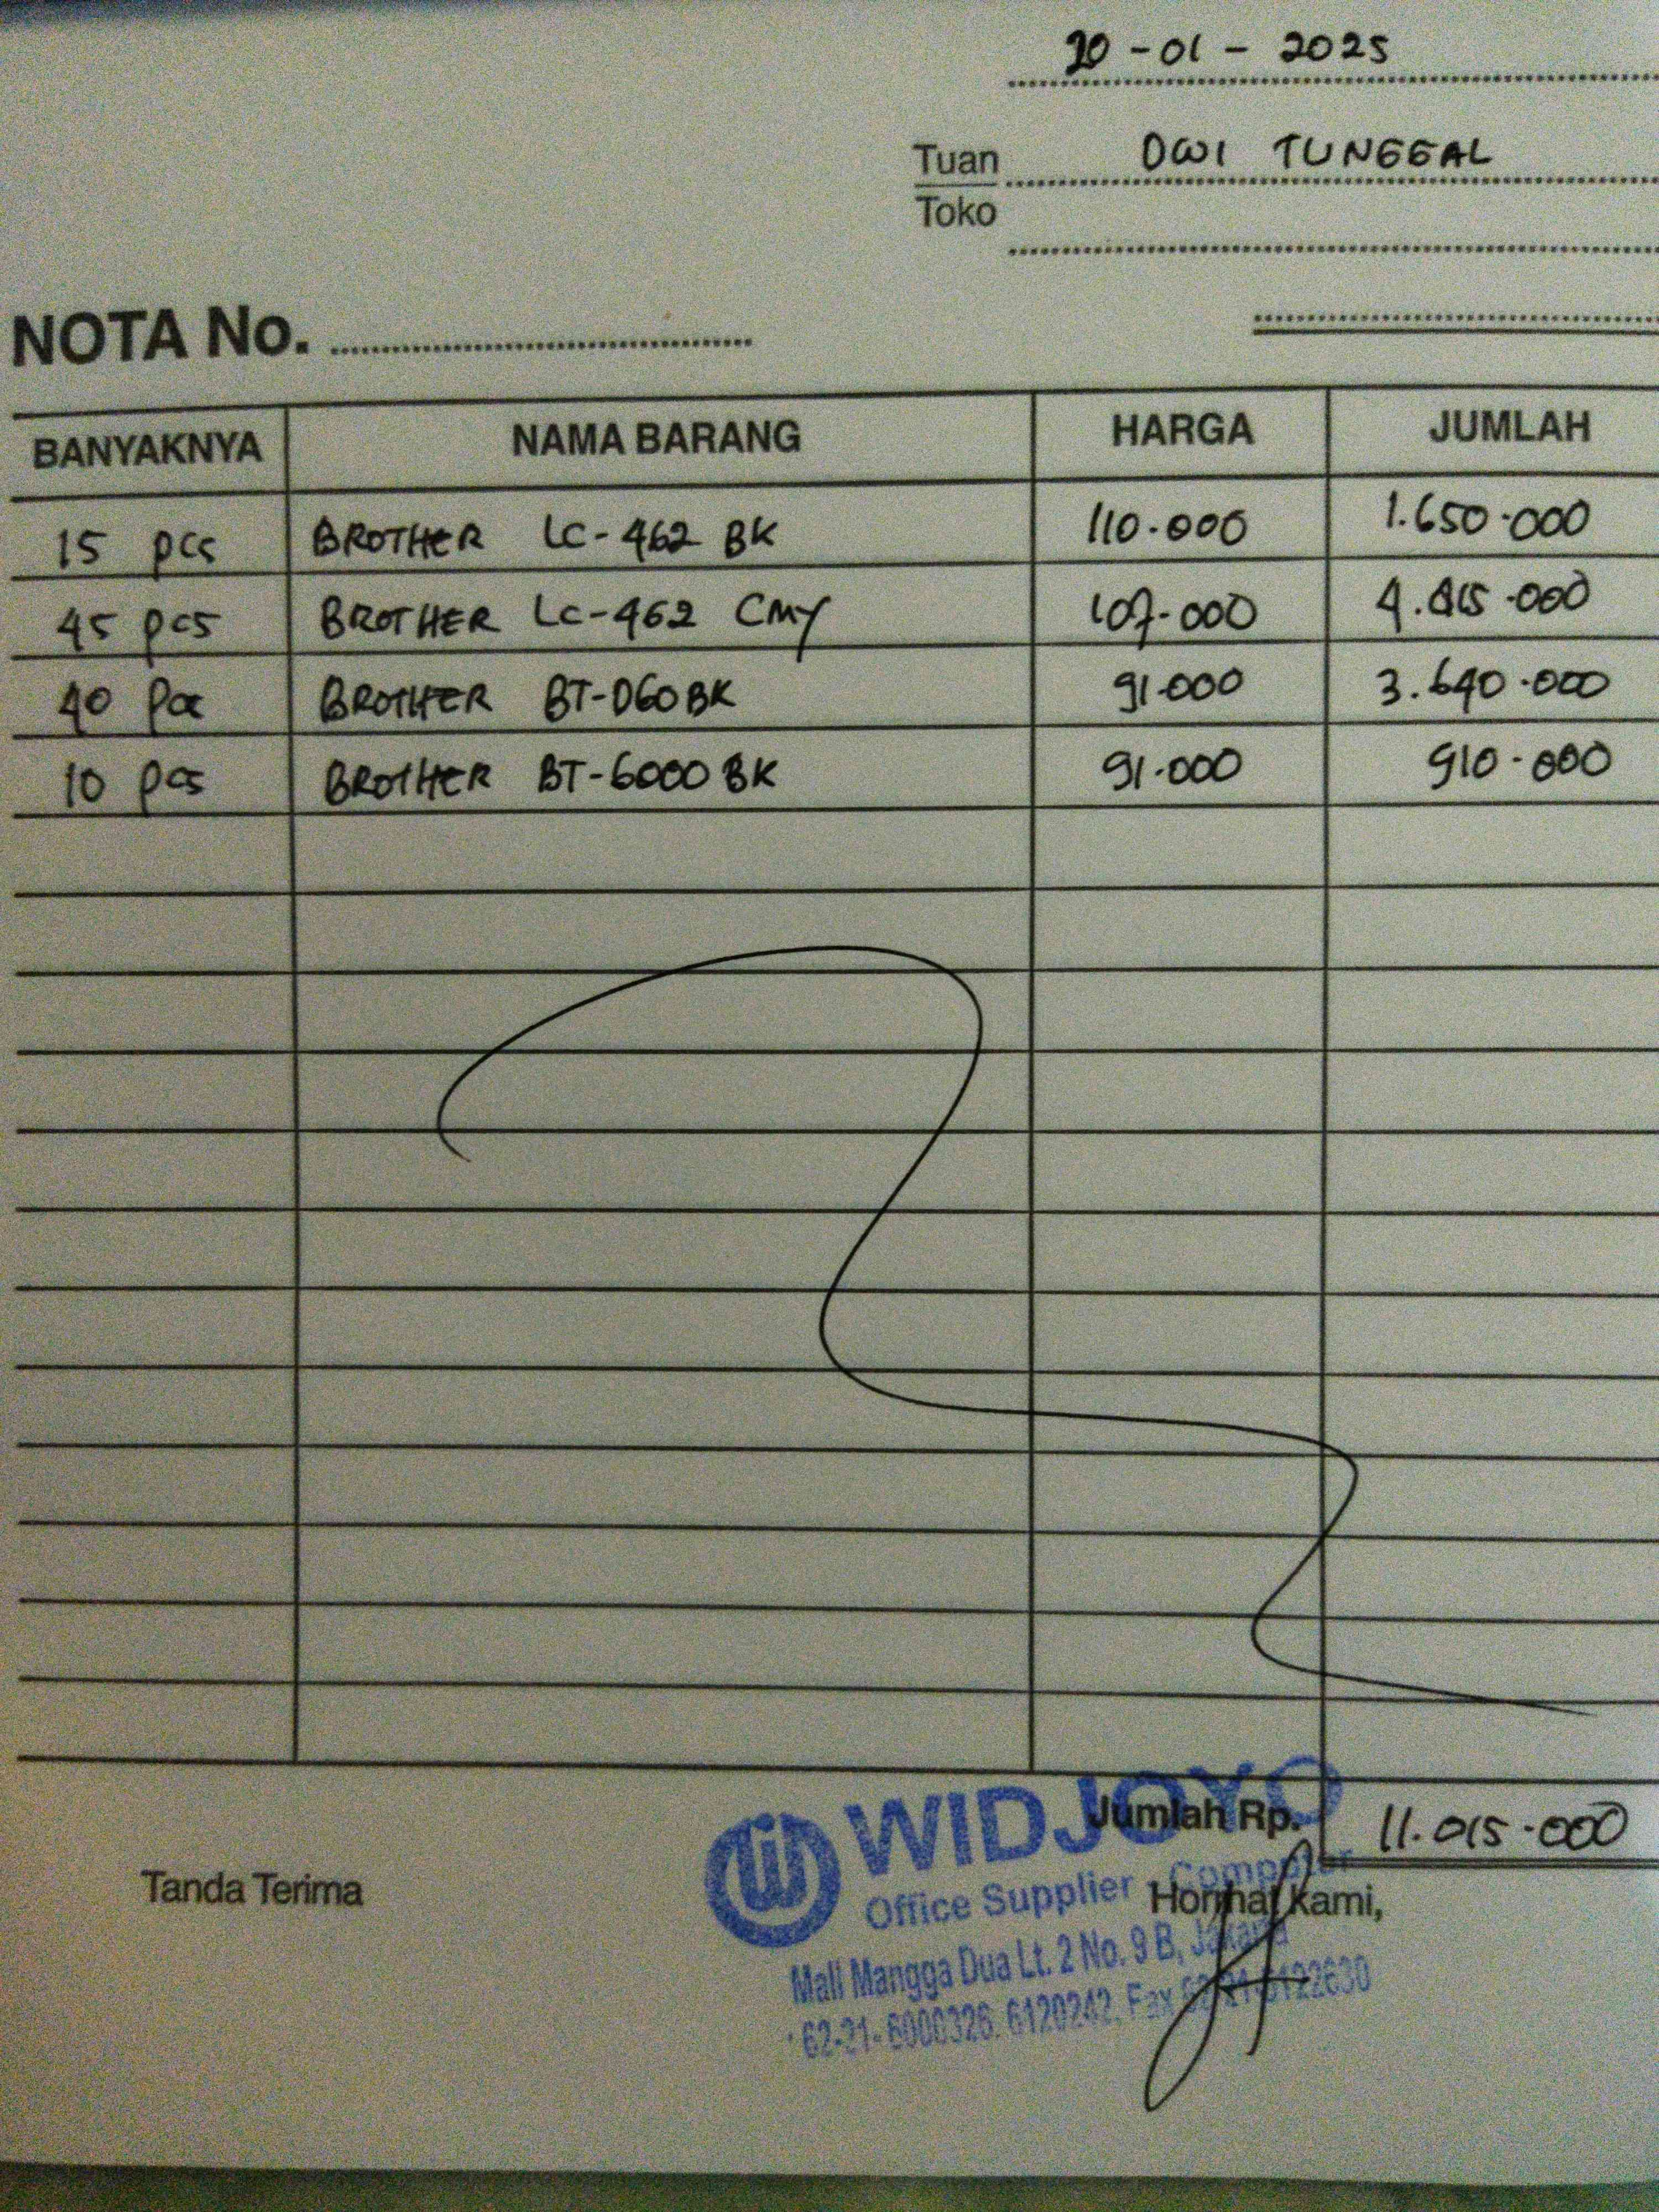 20-01-2025
Tuan DWI TUNGGAL
Toko
NOTA No.
BANYAKNYA NAMA BARANG HARGA JUMLAH
15 pcs BROTHER LC-462 BK 110.000 1.650.000
45 pcs BROTHER LC-462 CMY 107.000 4.815.000
40 pcs BROTHER BT-D60BK 91.000 3.640.000
10 pcs BROTHER BT-6000 BK 91.000 910.000
Jumlah Rp. 11.015.000
Tanda Terima Hormat Kami,
WIDJOYO
Office Supplier - Computer
Mall Mangga Dua Lt. 2 No. 9 B, Jakarta
62-21-6000326, 6120242, Fax